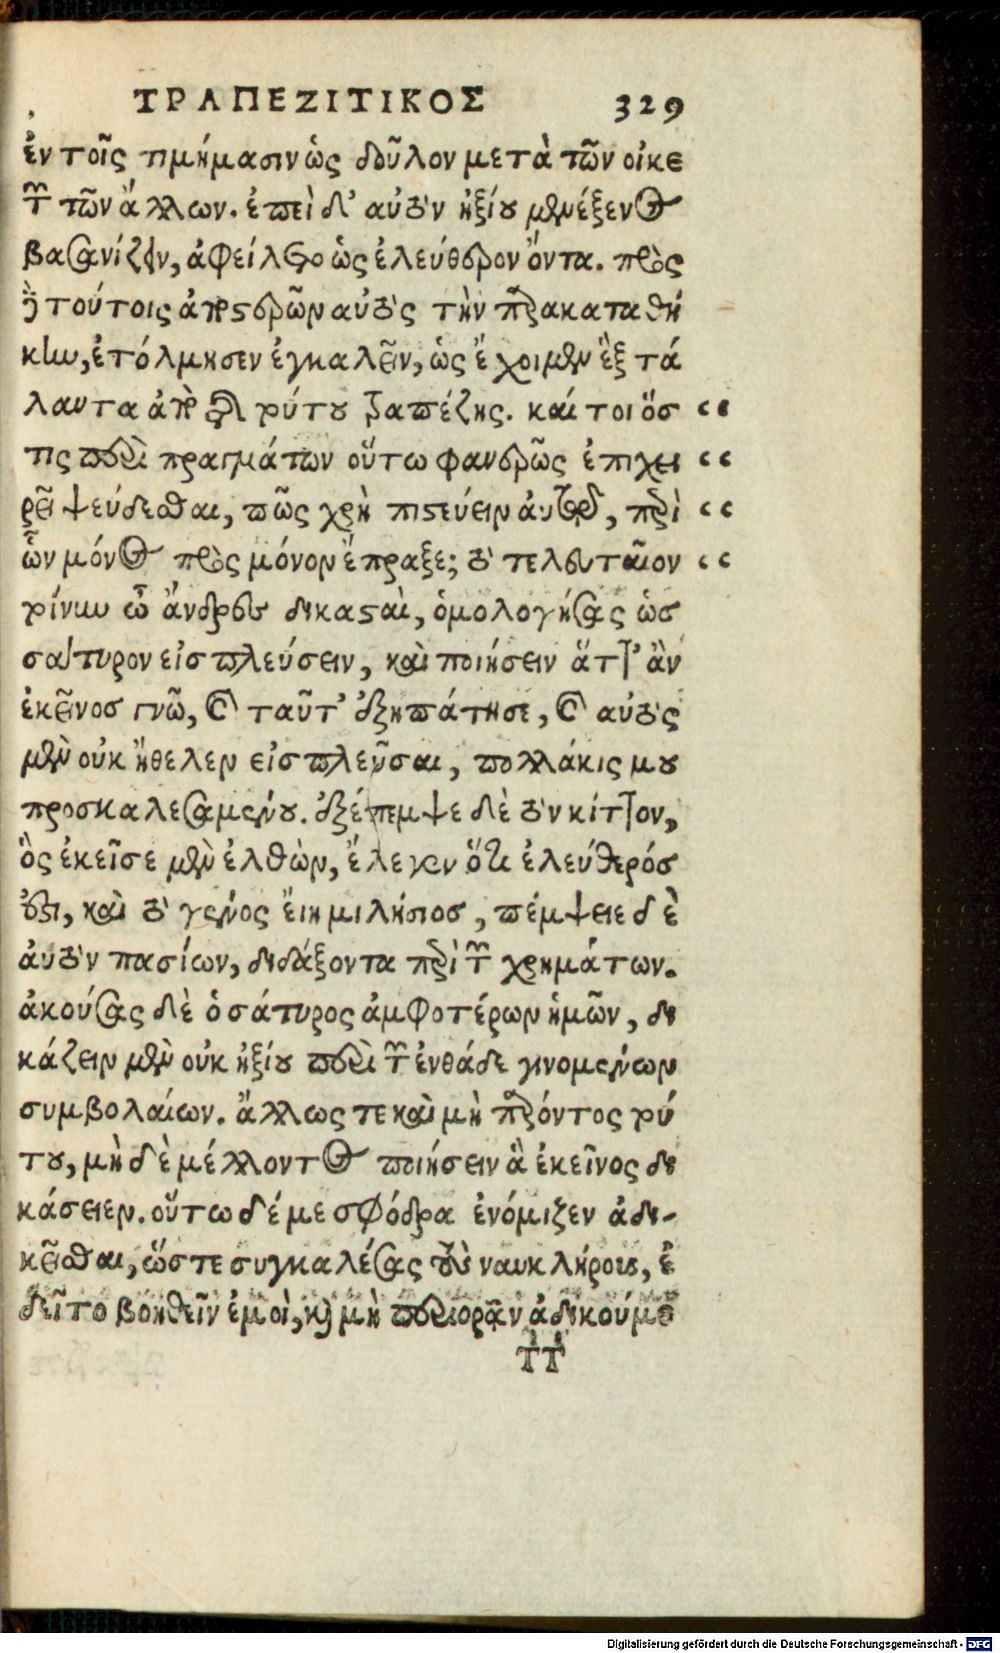 ΤΡΑΠΕΖΙΤΙΚΟΣ 329
ἐν τοῖς τιμήμασιν ὡς δοῦλον μετὰ τῶν οἰκε
τῶν τῶν ἄλλων. ἐπεὶ δ' αὐτὸν ἠξίου μενέξενος
βασανίζειν, ἀφείλετο ὡς ἐλεύθερον ὄντα. πρὸς
δὲ τούτοις ἀποστερῶν αὐτὸς τὴν παρακαταθή
κην, ἐτόλμησεν ἐγκαλεῖν, ὡς ἔχοιμεν ἓξ τά
λαντα ἀπὸ τῆς ρύτου τραπέζης. καίτοι ὅσ
τις περὶ πραγμάτων οὕτω φανερῶς ἐπιχει
ρεῖ ψεύδεσθαι, πῶς χρὴ πιστεύειν αὐτῷ, περὶ
ὧν μόνος πρὸς μόνον ἔπραξε; τὸ τελευταῖον
ρίνυν ὦ ἄνδρες δικασταὶ, ὁμολογήσας ὡσ
σάτυρον εἰσπλεύσειν, καὶ ποιήσειν ἅττ' ἂν
ἐκεῖνοσ γνῶ, καὶ ταῦτ' ἐξηπάτησε, καὶ αὐτὸς
μὲν οὐκ ἤθελεν εἰσπλεῦσαι, πολλάκις μου
προσκαλεσαμένου. ἐξέπεμψε δὲ τὸν κίττον,
ὃς ἐκεῖσε μὲν ἐλθὼν, ἔλεγεν ὅτι ἐλεύθερόσ
ἐστι, καὶ τὸ γένος εἴη μιλήσιοσ, πέμψειε δὲ
αὐτὸν πασίων, διδάξοντα περὶ τῶν χρημάτων.
ἀκούσας δὲ ὁ σάτυρος ἀμφοτέρων ἡμῶν, δι
κάζειν μὲν οὐκ ἠξίου περὶ τῶν ἐνθάδε γινομένων
συμβολαίων. ἄλλως τε καὶ μὴ παρόντος ρύ
του, μηδὲ μέλλοντος ποιήσειν ἃ ἐκεῖνος δι
κάσειεν. οὕτω δέ με σφόδρα ἐνόμιζεν ἀδι-
κεῖσθαι, ὥστε συγκαλέσας τοὺς ναυκλήρους, ἐ
δεῖτο βοηθεῖν ἐμοὶ, καὶ μὴ περιορᾶν ἀδικούμε
ΤΤ
Digitalisierung gefördert durch die Deutsche Forschungsgemeinschaft - DFG